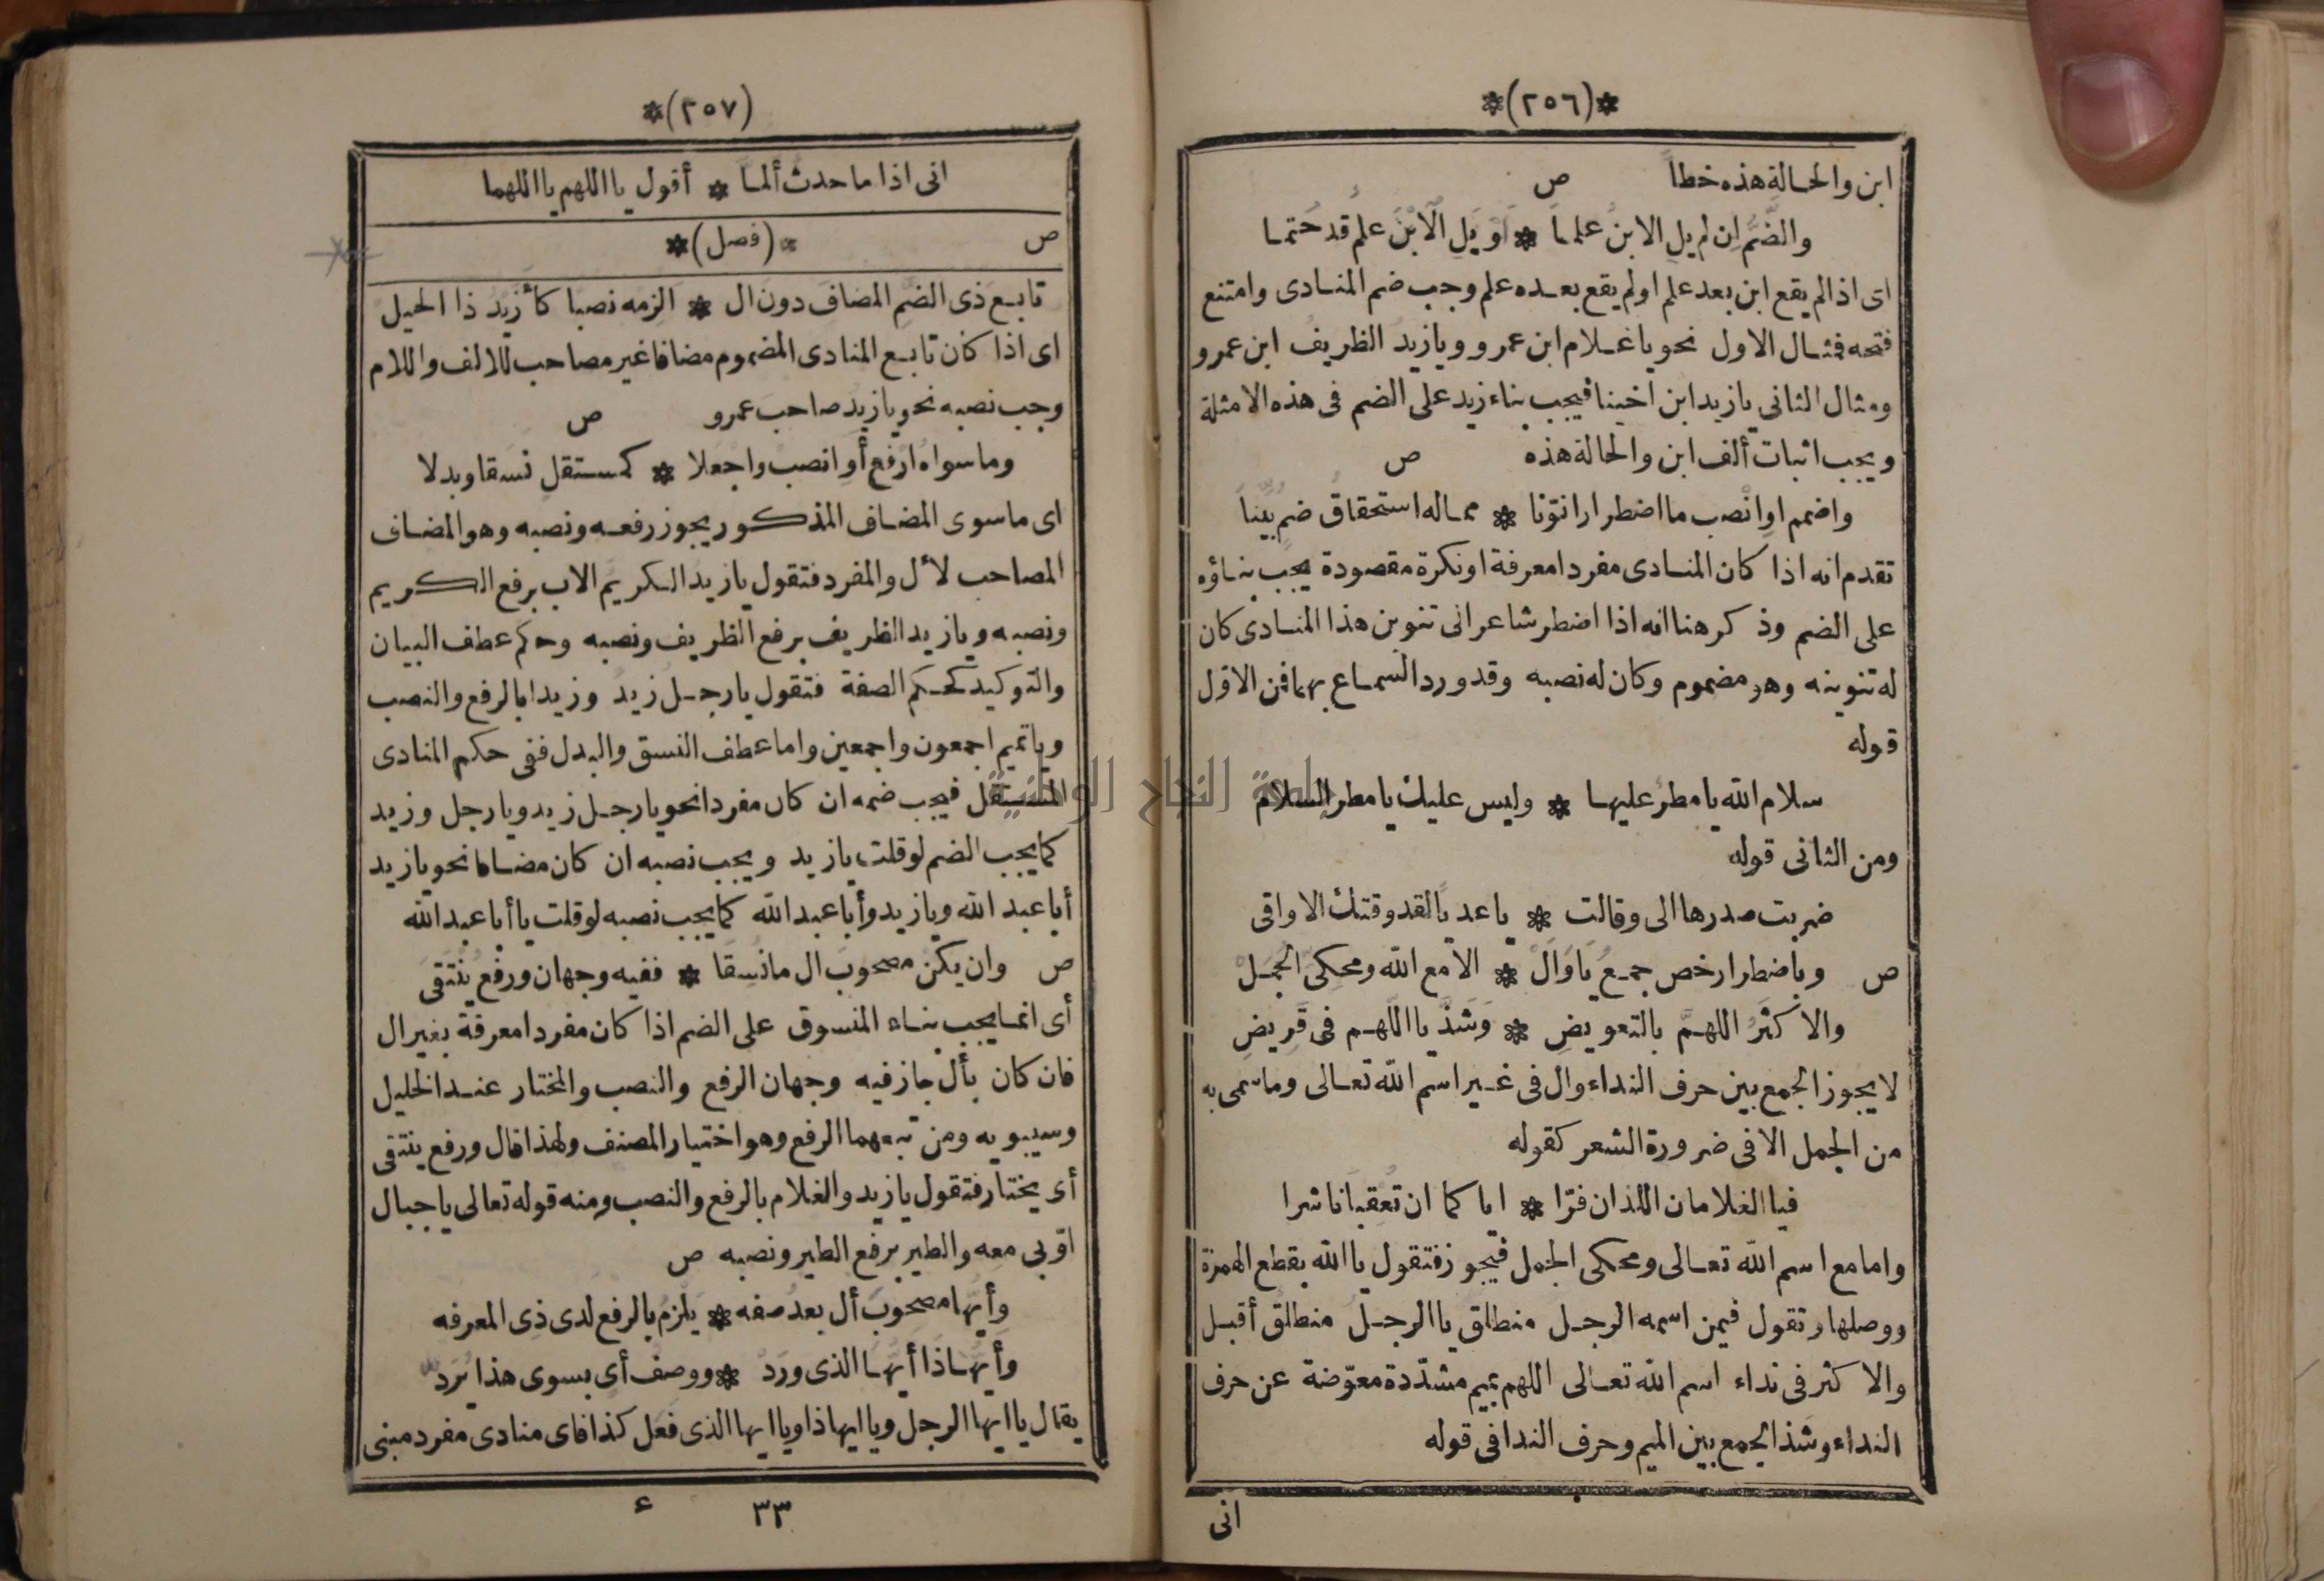 *(٢٥٦)*
ابن والحالة هذه خطأ ص
والضَّمُّ إن لم يلِ الابنُ علما * أوْ يَلِ الِابْنَ علمٌ قد حُتما
اى اذا لم يقع ابن بعد علم اولم يقع بعده علم وجب ضم المنادى وامتنع
فتحه فمثال الاول نحو ياغلام ابن عمرو ويازيد الظريف ابن عمرو
ومثال الثانى يازيد ابن اخينا فيجب بناء زيد على الضم فى هذه الامثلة
ويجب اثبات ألف ابن والحالة هذه ص
واضمم اوِ انْصب ما اضطرارا نوّنا * مماله استحقاقُ ضم بُيّنا
تقدم انه اذا كان المنادى مفردا معرفة اونكرة مقصودة يجب بناؤه
على الضم وذكر هنا انه اذا اضطر شاعر الى تنوين هذا المنادى كان
له تنوينه وهو مضموم وكان له نصبه وقد ورد السماع بهما فمن الاول
قوله
سلام الله يا مطرٌ عليها * وليس عليك يا مطر السلام
ومن الثانى قوله
ضربت صدرها الى وقالت * يا عديًا لقد وقتك الاواقى
ص وباضطرار خص جمعُ يَا وَالْ * الا مع الله ومحكىّ الجمَلْ
والاكثَرُ اللهمّ بالتعويضِ * وَشَذَّ يا اللهم فى قَريضِ
لايجوز الجمع بين حرف النداء وال فى غير اسم الله تعالى وماسمى به
من الجمل الا فى ضرورة الشعر كقوله
فيا الغلامان اللذان فرّا * اياكما ان تُعقبانا شرا
وامامع اسم الله تعالى ومحكى الجمل فيجوز فتقول يا الله بقطع الهمزة
ووصلها وتقول فيمن اسمه الرجل منطلق يا الرجلُ منطلق أقبل
والاكثر فى نداء اسم الله تعالى اللهم بميم مشدّدة معوّضة عن حرف
النداء وشذ الجمع بين الميم وحرف الندا فى قوله
انى
(٢٥٧)*
انى اذا ما حدث ألما * أقول يا اللهم يا اللهما
ص *(فصل)*
تابعَ ذى الضم المضافَ دون ال * الزمه نصبا كأزيدُ ذا الحيل
اى اذا كان تابع المنادى المضموم مضافا غير مصاحب للالف واللام
وجب نصبه نحو يازيدُ صاحبَ عمرو ص
وماسواه ارفع أوِ انصب واجعلا * كمستقلٍ نسَقا وبدلا
اى ماسوى المضاف المذكور يجوز رفعه ونصبه وهو المضاف
المصاحب لأل والمفرد فتقول يازيد الكريم الاب برفع الكريم
ونصبه ويازيد الظريف برفع الظريف ونصبه وحكم عطف البيان
والتوكيد كحكم الصفة فتقول يارجل زيدٌ وزيدا بالرفع والنصب
وياتميم اجمعون واجمعين واما عطف النسق والبدل ففى حكم المنادى
المستقل فيجب ضمه ان كان مفردا نحو يارجل زيد ويارجل وزيد
كما يجب الضم لوقلت يازيد ويجب نصبه ان كان مضافا نحو يازيد
أبا عبد الله ويازيد وأبا عبد الله كما يجب نصبه لوقلت يا أبا عبد الله
ص وان يكن مصحوبَ ال مانُسِقَا * ففيه وجهان ورفعٌ يُنْتَقَى
أى انما يجب بناء المنسوق على الضم اذا كان مفردا معرفة بغير ال
فان كان بأل جاز فيه وجهان الرفع والنصب والمختار عند الخليل
وسيبويه ومن تبعهما الرفع وهو اختيار المصنف ولهذا قال ورفع ينتقى
أى يختار فتقول يازيد والغلام بالرفع والنصب ومنه قوله تعالى ياجبال
اوّبى معه والطير برفع الطير ونصبه ص
وأيّها مصحوبَ أل بعدُ صفه * يلزمُ بالرفع لدى ذى المعرفه
وَأَيُّهَاذَا أيُّها الذى ورَدْ * ووصفُ أى بسوى هذا يُرَدّ
يقال يا ايها الرجل ويا ايهاذا ويا ايها الذى فَعَل كذا فاى منادى مفرد مبنى
٣٣ ء
جامعة النجاح الوطنية